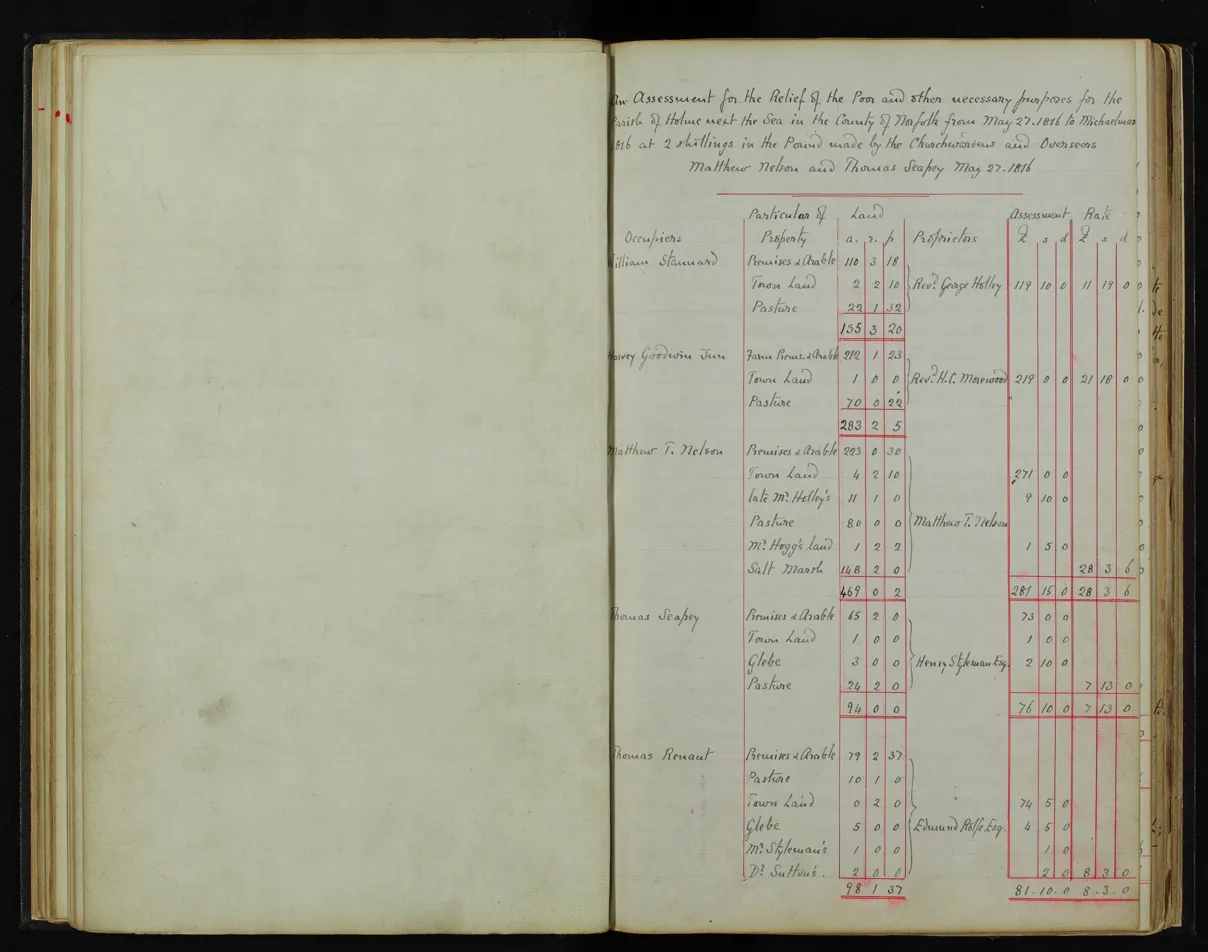 An Assessment for the Relief of the Poor and other necessary purposes for the
Parish of Holme next the Sea in the County of Norfolk from May 27. 1816 to Michaelmas
1816 at 2 shillings in the Pound made by the Churchwardens and Overseers
Matthew Nelson and Thomas Seapey May 27. 1816
Particular of Land Assessment Rate
Occupiers Property a. r. p Proprietors £ s d £ s d
William Stannard Premises & Arable 110 3 18
Town Land 2 2 10 Revd. George Hotley 119 10 0 11 19 0
Pasture 22 1 32
135 3 20
Harvey Goodwin Jun Farm Prems. & Arable 212 1 23
Town Land 1 0 0 Revd. H. C. Morewood 219 0 0 21 18 0
Pasture 70 0 22
283 2 5
Matthew T. Nelson Premises & Arable 223 0 30
Town Land 4 2 10 271 0 0
late Mr. Hotley's 11 1 0 9 10 0
Pasture 80 0 0 Matthew T. Nelson
Mr. Hogg's land 1 2 2 1 5 0
Salt Marsh 148 2 0 28 3 6
469 0 2 281 15 0 28 3 6
Thomas Seapey Premises & Arable 65 2 0 73 0 0
Town Land 1 0 0 1 0 0
Glebe 3 0 0 Henry Styleman Esq. 2 10 0
Pasture 24 2 0 7 13 0
94 0 0 76 10 0 7 13 0
Thomas Renaut Premises & Arable 79 2 37
Pasture 10 1 0
Town Land 0 2 0 74 5 0
Glebe 5 0 0 Edmund Rolfe Esq. 4 5 0
Mr. Styleman's 1 0 0 1 0
Dr. Sutton's. 2 0 0 2 0 8 3 0
98 1 37 81. 10. 0 8. 3. 0